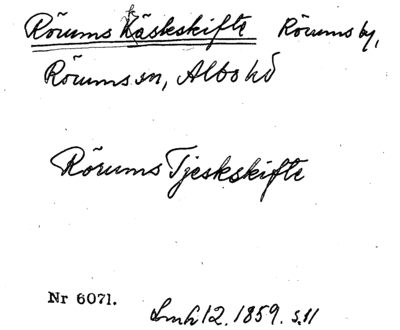 Rörums Käskskifte Rörums by,
Rörums sn, Albo hd
Rörums Tjeskskifte
Nr 6071.
Lmh 12. 1859. s. 11